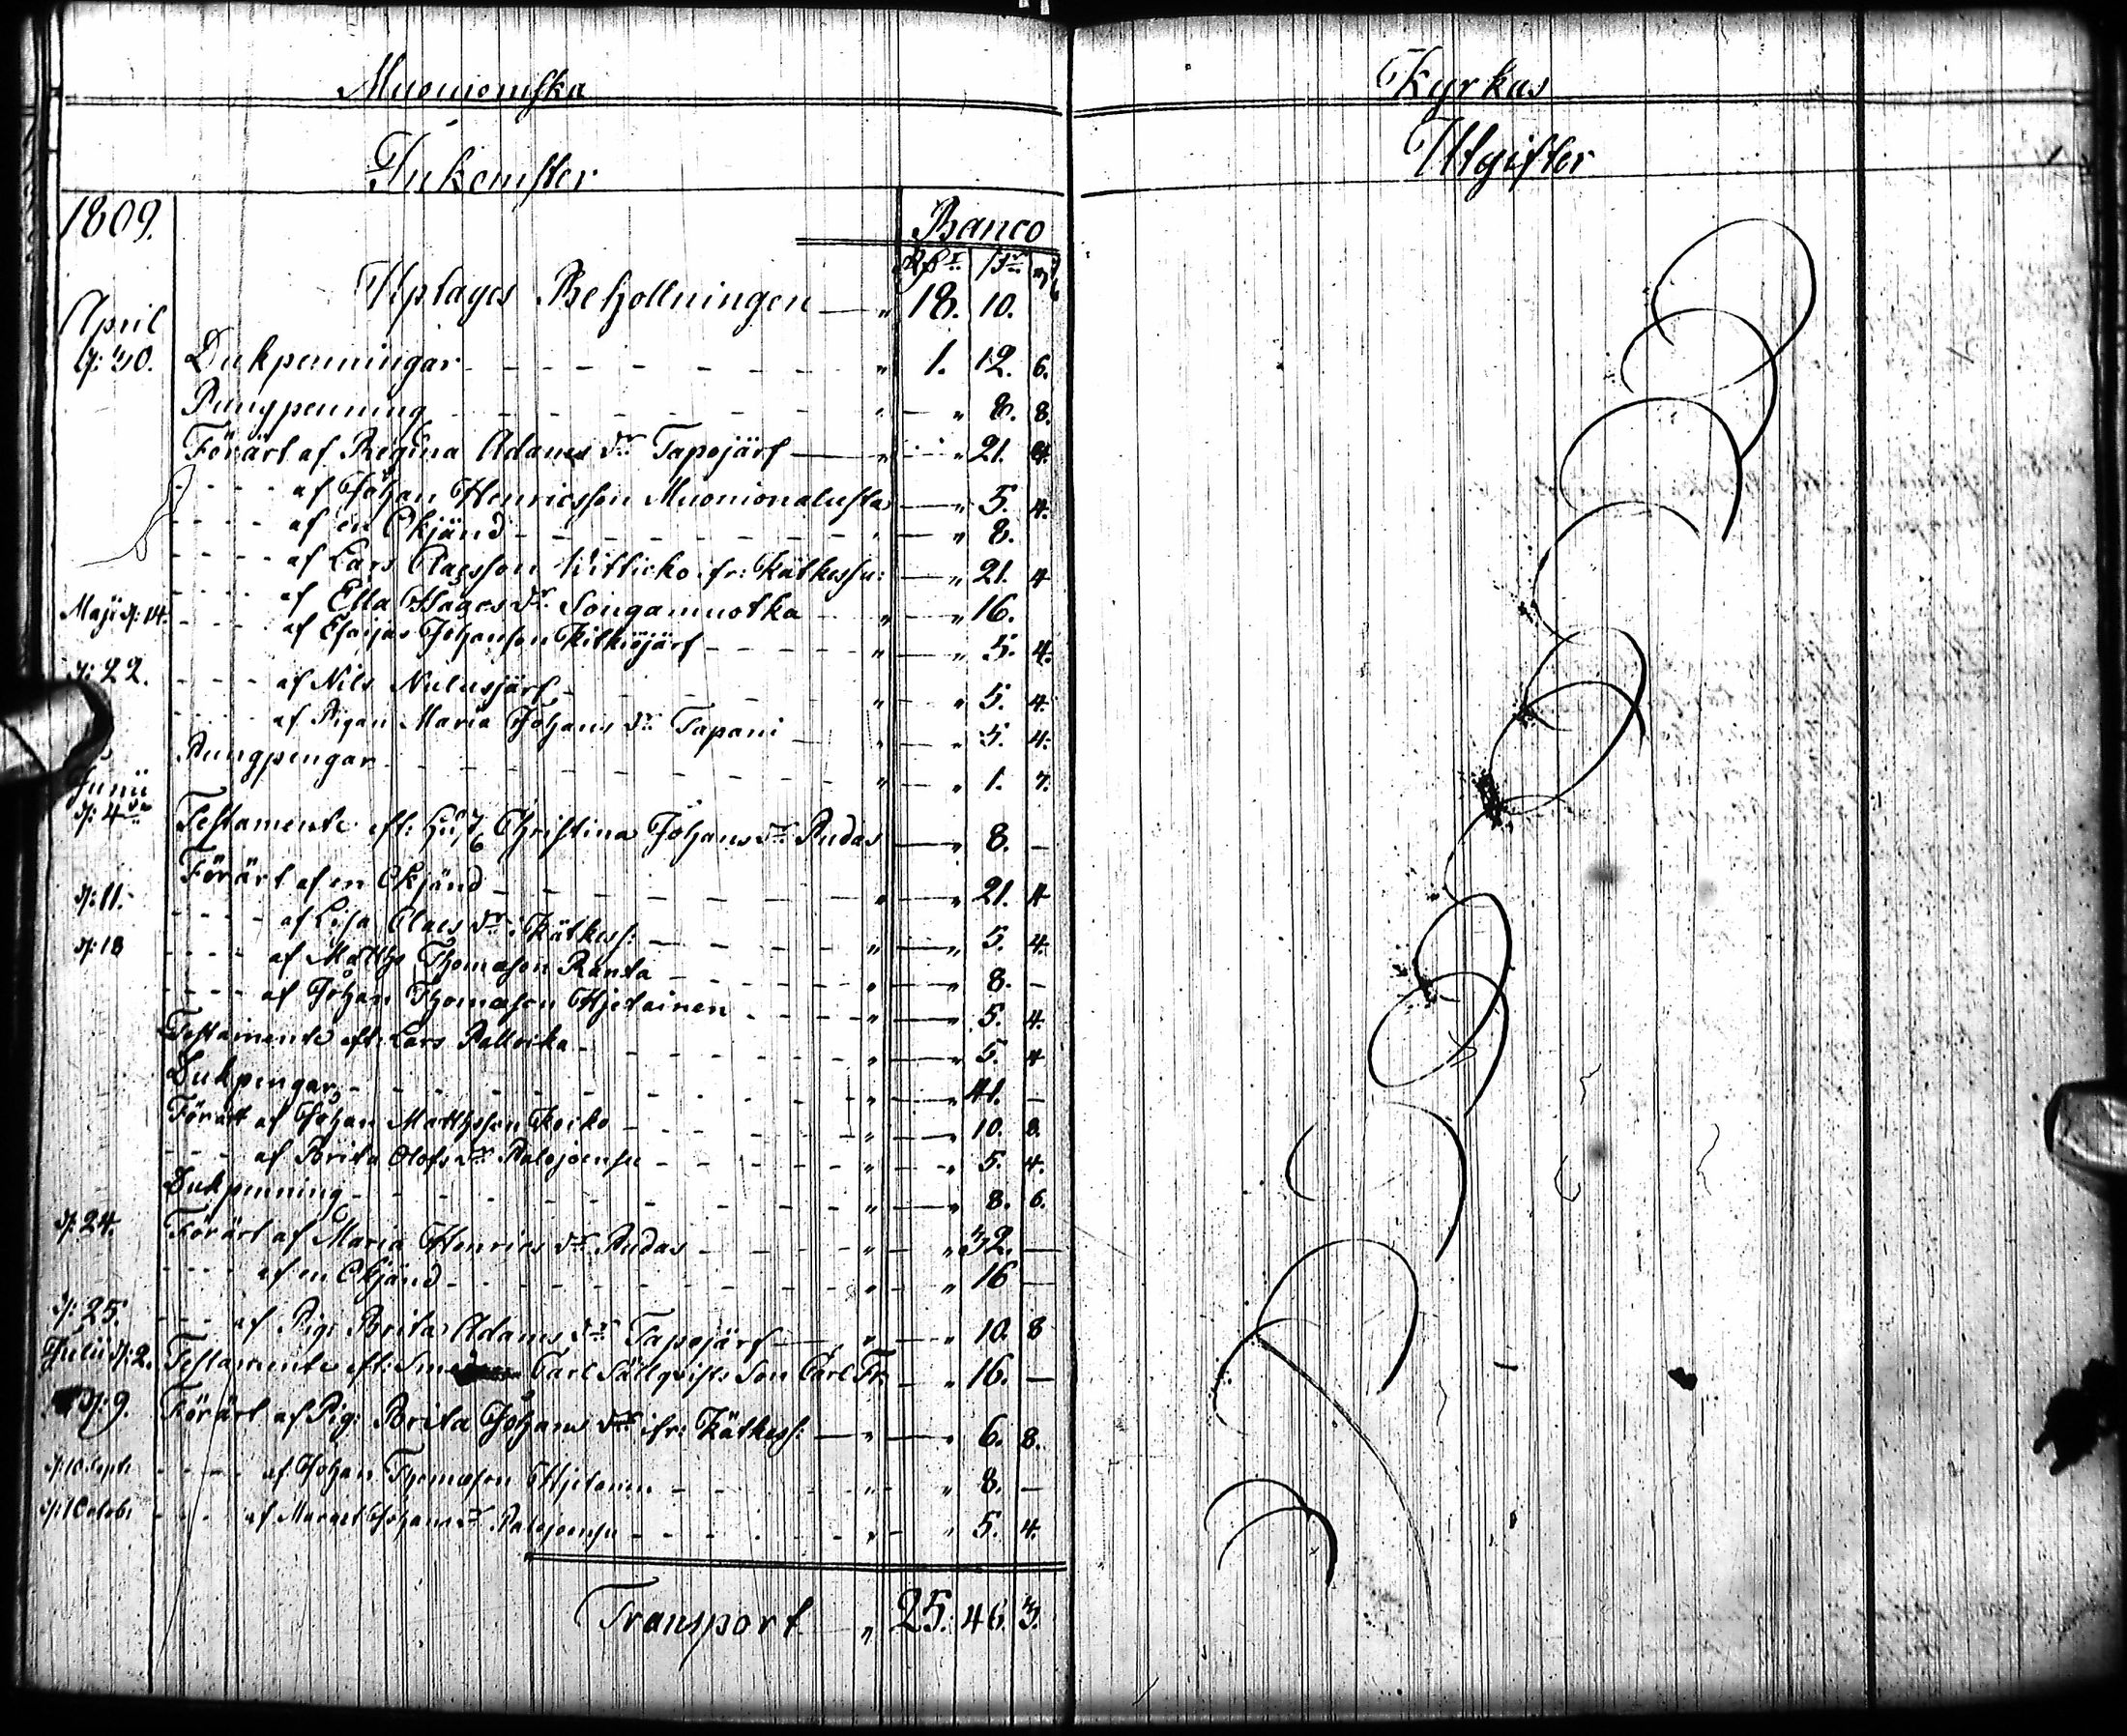 Muonionska
Inkomster
1809.
Banco
Rdr ß r
Uptages Behollningen — „ 18. 10.
April
d: 30. Dukpenningar - - - „ 1. 12. 6.
Pungpenning - - - „ — „ 8. 8.
Förärt af Regina Adams dr Tapojärf — „ — „ 21. 4.
- - - af Johan Henricsson Muonionalusta — „ 5. 4.
- - - af en Okjänd - - - „ — „ 8.
- - - af Lars Claesson Witticko ifr: Kätkessu: — „ 21. 4
- - - af Ella Hages dr Songamuotka - - „ — „ 16.
Maji d: 14. - - - af Esaijas Johanson Kitkiöjärf - - - „ — „ 5. 4.
d: 22. - - - af Nils Nulusjärf - - - „ — „ 5. 4.
- - - af Pigan Maria Johans dr Tapani — „ — „ 5. 4.
Pungpengar - - - „ — „ 1. 7.
Junii
d: 4de Testamente eft: Christina Johans dr Rudas — „ 8. —
Förärt af en Okjänd - - - „ — „ 21. 4
d: 11. - - - af Lisa Claes dr Kätkess: - - - „ — „ 5. 4.
d: 18 - - - af Matths Thomason Ranta - - - „ — „ 8. —
- - - af Johan Thomason Hjetainen - - - „ — „ 5. 4.
Testamente eft: Lars - - - „ — „ 5. 4
Dukpengar - - - „ — „ 41. —
Förärt af Johan Matthsson Keiko - - - „ — „ 10. 8.
- - - af Brita Olofs dr Palojoensu - - - „ — „ 5. 4.
Dukpenning - - - „ — „ 8. 6.
d: 24. Förärt af Maria Henrics dr Rudas - - - „ — „ 32. —
- - - af en Okjänd - - - „ — „ 16 —
d: 25. - - - af Pig: Brita Adams dr Tapojärf — „ — „ 10. 8
Julii d: 2. Testamente eft: Carl Sällqvists Son Carl Fr: — „ 16. —
d: 9. Förärt af Pig: Brita Johans dr ifr: Kätkess: — „ — „ 6. 8.
d: 10 Sept: - - - af Johan Thomason Hjetainen - - - „ — „ 8. —
d: 1 Octobr - - - af Marget Johans dr Palojoensu - - - „ — „ 5. 4.
Transport „ 25. 46. 3.
Kyrkas
Utgifter